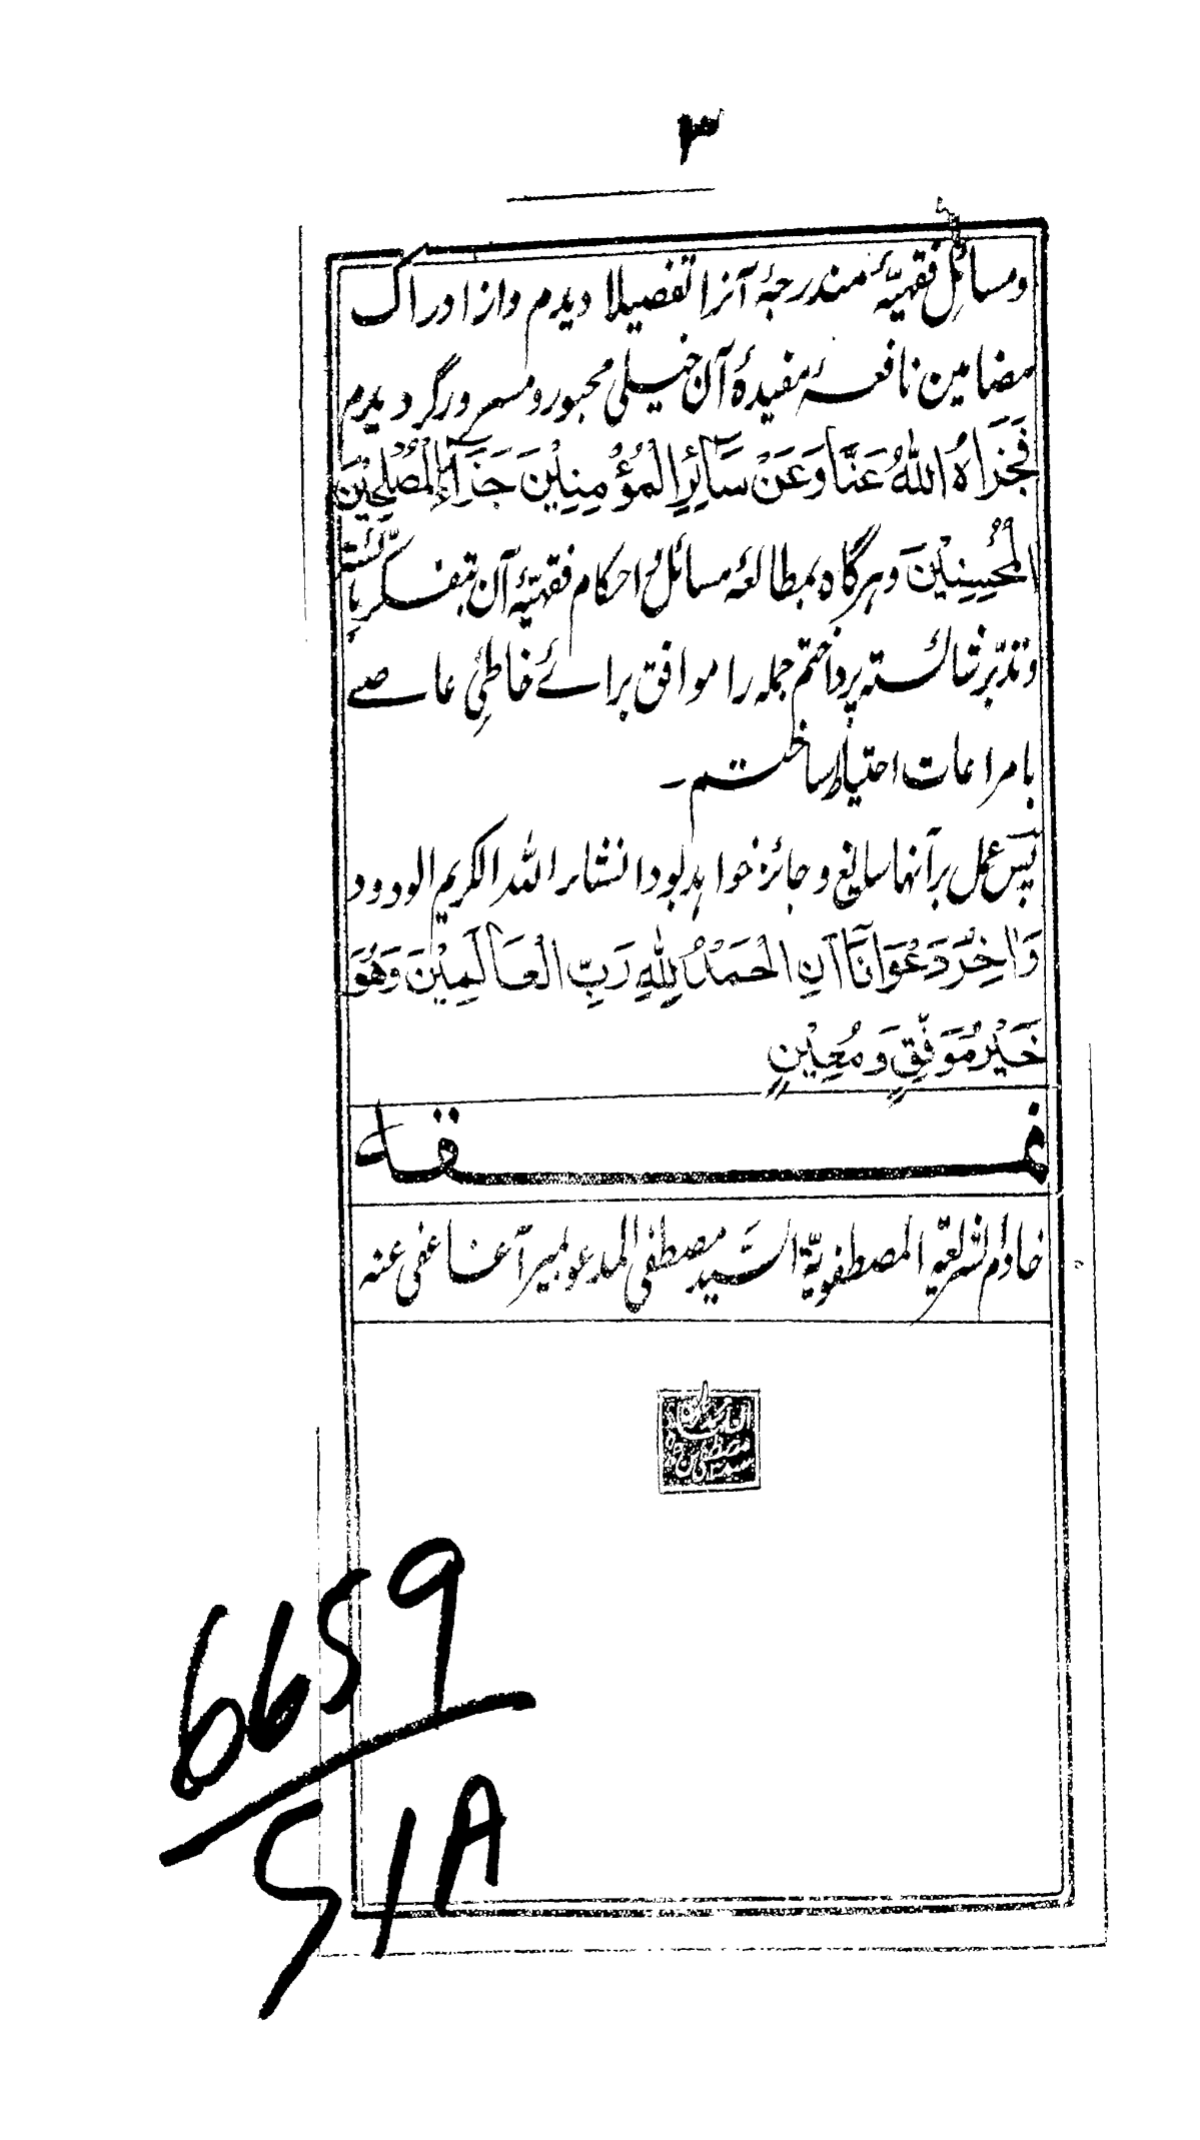 ۳
ومسائل فقہیّہ مندرجۂ آنرا تفصیلا دیدم واز ادراک
مضامین نافعہ مفیدۂ آن خیلی محبور ومسرور گردیدم
فَجَزَاهُ اللهُ عَنَّا وَعَنْ سَآئِرِ الْمُؤْمِنِيْنَ جَزَآءَ الْمُصْلِحِيْنَ
الْمُحْسِنِيْنَ وہرگاہ بمطالعۂ مسائل واحکام فقہیّۂ آن بتفکر بائستہ
وتدبّر شائستہ پرداختم جملہ را موافق برائے خاطئ عاصے
بامراعات احتیاط ساختم ۔
پس عمل برآنہا سایغ وجائز خواہد بود انشاء اللہ الکریم الودود
وَاٰخِرُ دَعْوَانَآ اَنِ الْحَمْدُ لِلّٰهِ رَبِّ الْعَالَمِيْنَ وَهُوَ
خَيْرُ مُوَفِّقٍ وَمُعِيْنٍ
نمقہ
خادم الشریعۃ المصطفویّۃ السّید مصطفی المدعو بمیر آغا عفی عنہ
6659
51A